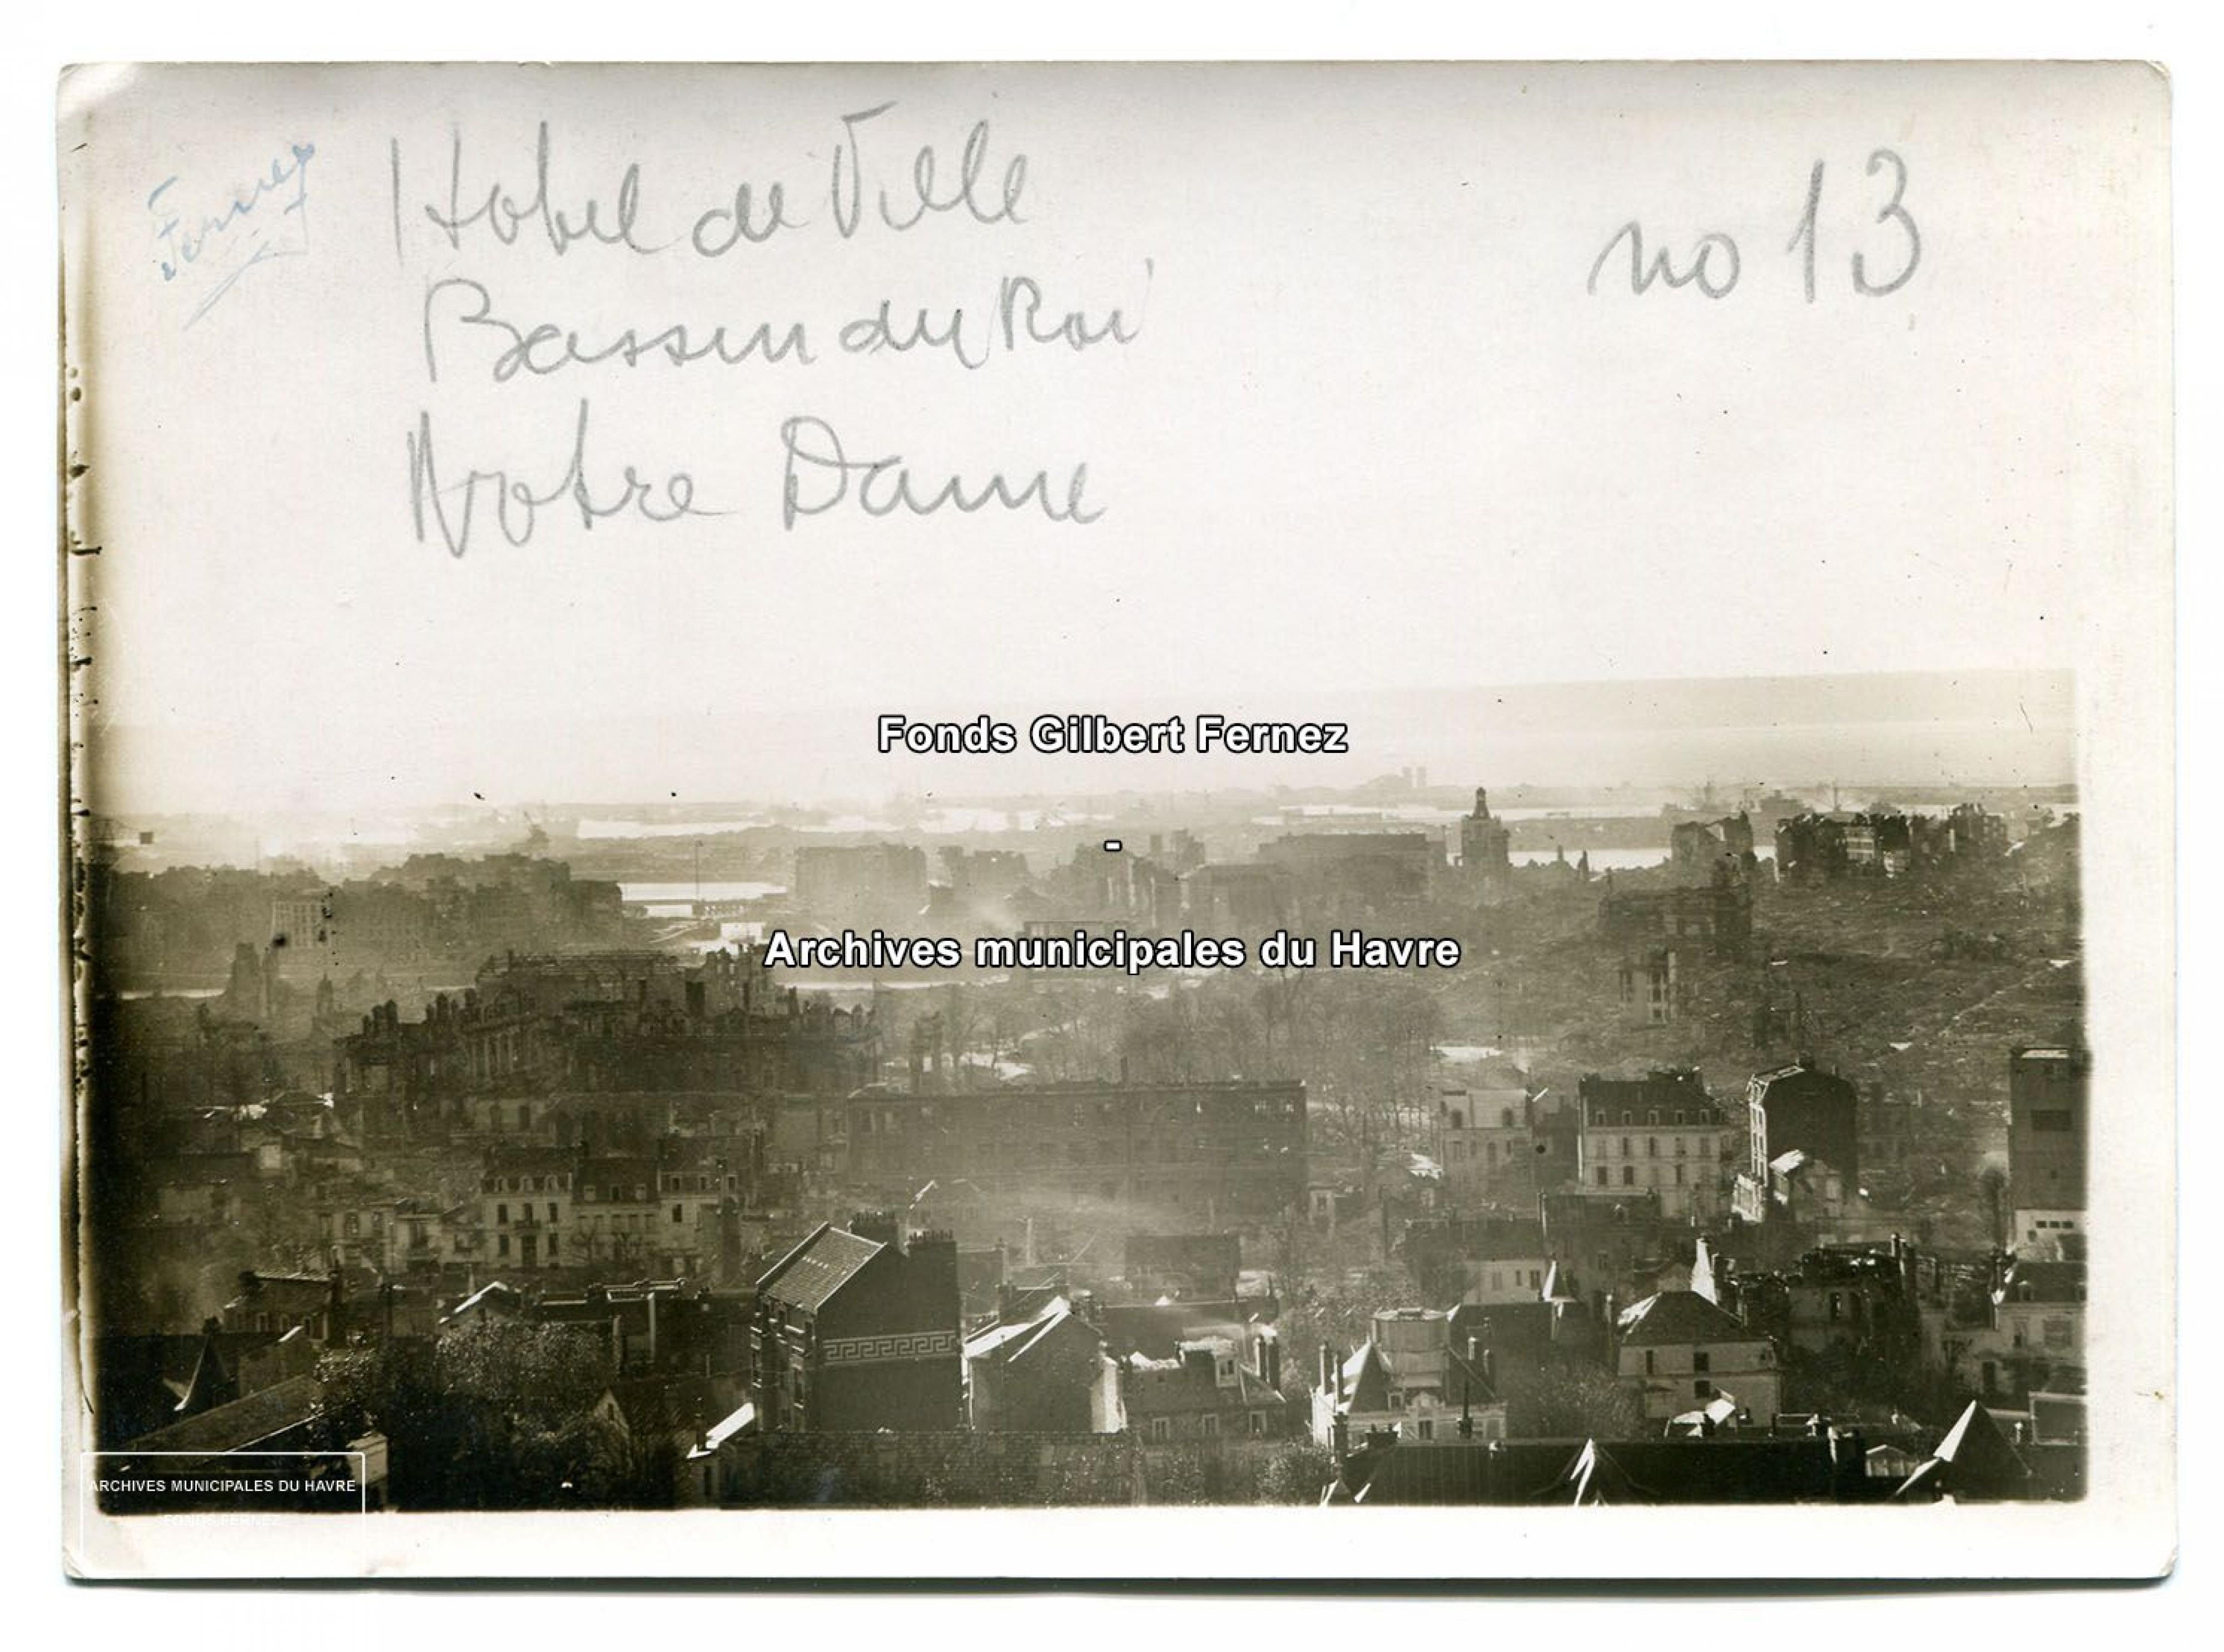 Fernez
Hotel de Ville
no 13
Bassin du Roi
Notre Dame
Fonds Gilbert Fernez
-
Archives municipales du Havre
ARCHIVES MUNICIPALES DU HAVRE
FONDS FERNEZ